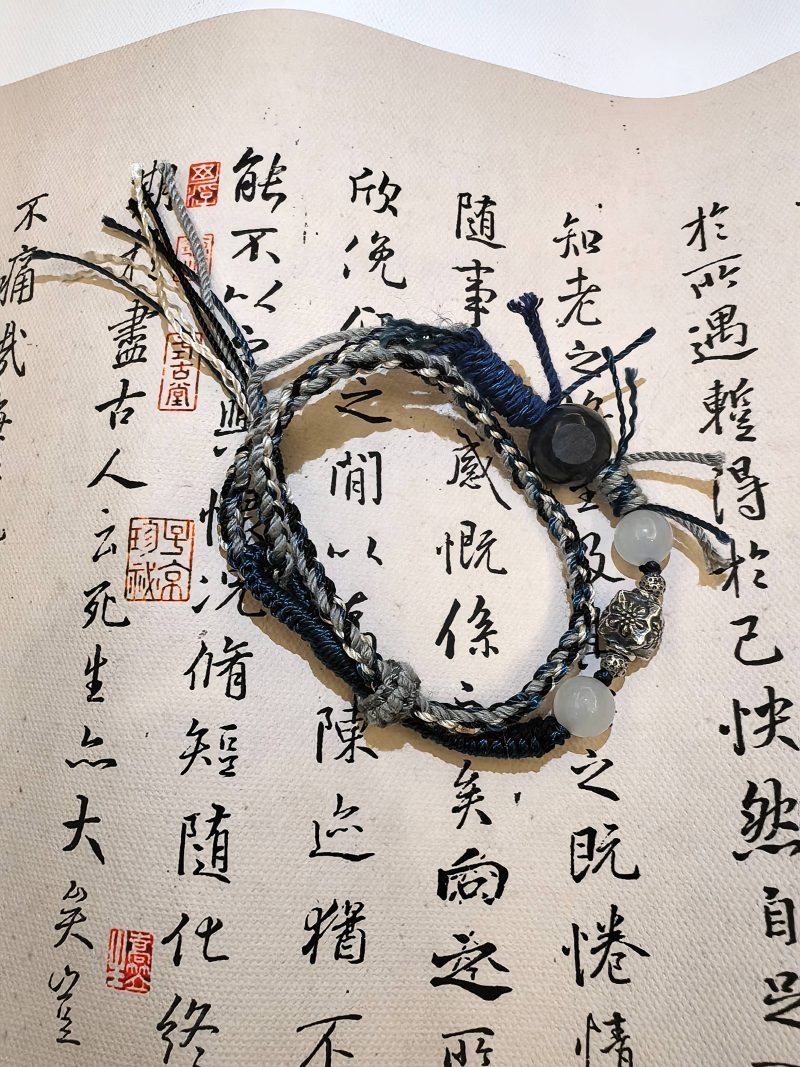 於所遇蹔得於己快然自足
知老之至及之既惓情
随事感慨係之矣向之所
欣俛仰之閒以為陳迹猶不
能不以之興懷况脩短随化終
期於盡古人云死生亦大矣豈
不痛哉每
子京珍祕